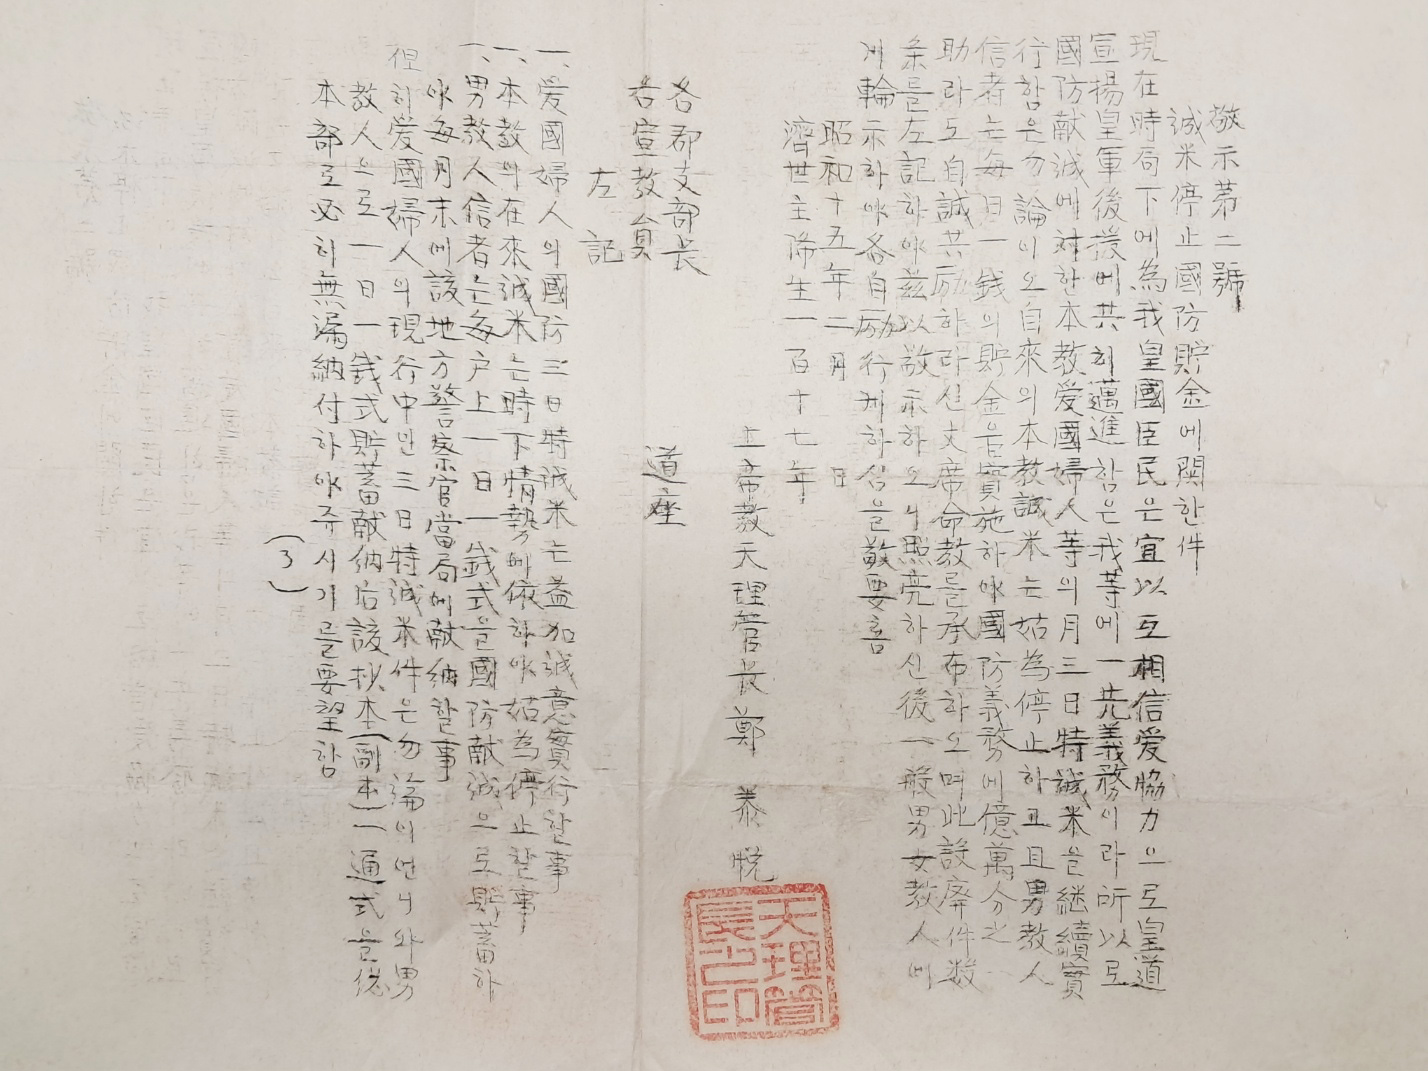 敬示第二號
誠米停止國防貯金에関한件
現在時局下에為我皇國臣民은宜以互相信爱協力으로皇道
宣揚皇軍後援에共히邁進함은我等에一先義務이라所以로
國防献誠에対한本教爱國婦人等의月三日特誠米을継續實
行함은勿論이오自來의本教誠米는姑為停止하고且男教人
信者는每日一錢의貯金을實施하야國防義務에億萬分之一
助라도自誠共励하라신丈席命教를承布하오며此設廃件数
条를左記하야玆以敬示하오니照亮하신後一般男女教人에
게輪示하야各自励行케하심을敬要喜
昭和十五年二月 日
濟世主降生一百十七年
上帝教天理管長鄭 泰 悦
天理管長之印
各郡支部長
各宣教員 道座
左 記
一、爱國婦人의國防三日特誠米는益加誠意實行할事
一、本教의在來誠米는時下情勢에依하야姑為停止할事
一、男教人信者는每户上一日一銭式을國防献誠으로貯蓄하
야每月末에該地方警察官當局에献納할事
但히爱國婦人의現行中인三日特誠米件은勿論이언니와男
教人으로一日一銭式貯蓄献納后該状本(副本)一通式을総
本部로必히無漏納付하야주시기를要望함
(3)